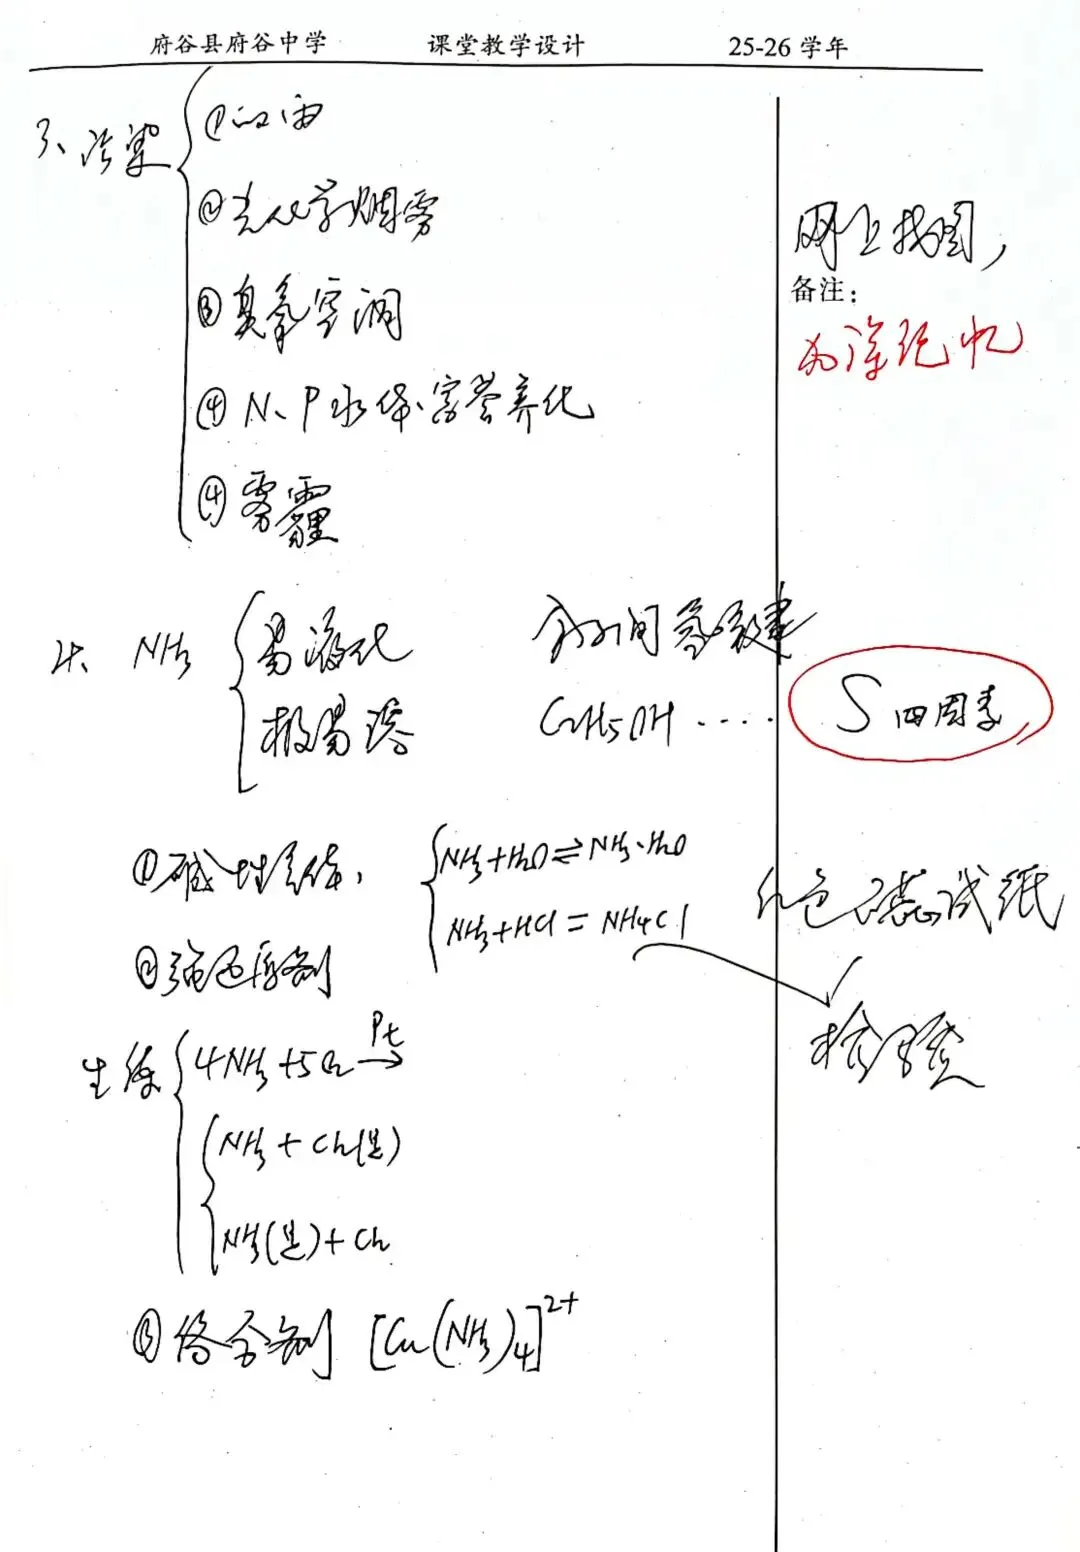 府谷县府谷中学 课堂教学设计 25-26 学年
3、污染
①酸雨
②光化学烟雾
③臭氧空洞
④N、P水体富营养化
④雾霾
网上找图,
备注:
加深记忆
4、NH3
易液化 分子间氢键
极易溶 C2H5OH ····
S 四周季
①碱性气体,
NH3+H2O⇌NH3·H2O
NH3+HCl=NH4Cl
红色石蕊试纸
检验
②强还原剂
4NH3+5O2 Pt→
NH3+Cl2(足)
NH3(足)+Cl2
③络合剂 [Cu(NH3)4]2+